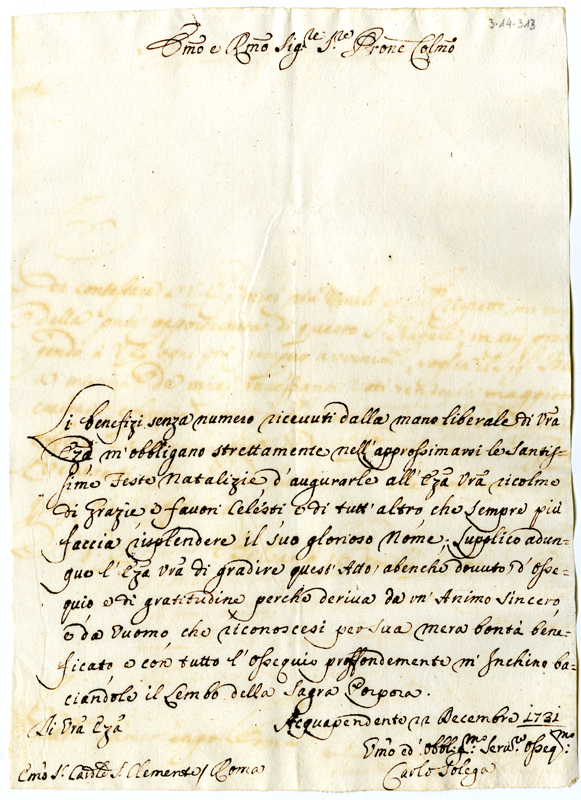 3-14-313
Emo e Rmo Sigre Sre Prone Colmo
Li benefizi senza numero ricevuti dalla mano liberale di Vra
Eza m'obbligano strettamente nell'approssimarsi le Santis-
sime Feste Natalizie d'augurarle all'Eza Vra ricolme
di Grazie e favori Celesti e di tutt'altro che sempre più
faccia risplendere il suo glorioso Nome; Supplico adun-
que l'Eza Vra di gradire quest'Atto, abenche dovuto, d'osse-
quio e di gratitudine perche deriva da un'Animo sincero,
e da Vuomo, che riconoscesi per sua mera bontà bene-
ficato e con tutto l'ossequio proffondemente m'Inchino ba-
ciandole il Lembo della Sagra Porpora.
Di Vra Eza
Acquapendente 12 Decembre 1731
Vmo ed' Obbligmo: Serve Osseqmo:
Emo Sr Cardle S. Clemente / Roma
Carlo